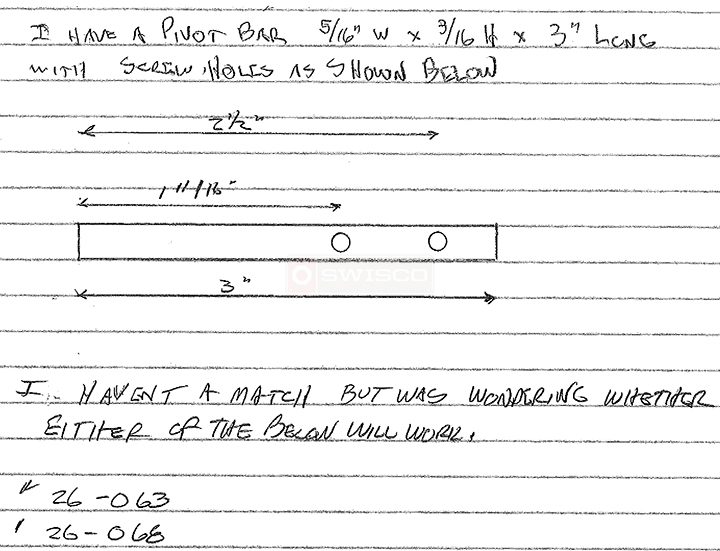 I HAVE A PIVOT BAR 5/16" W x 3/16 H x 3" LONG
WITH SCREW HOLES AS SHOWN BELOW
2 1/2"
1 11/16"
SWISCO
3"
I HAVENT A MATCH BUT WAS WONDERING WHETHER
EITHER OF THE BELOW WILL WORK.
26-063
26-068